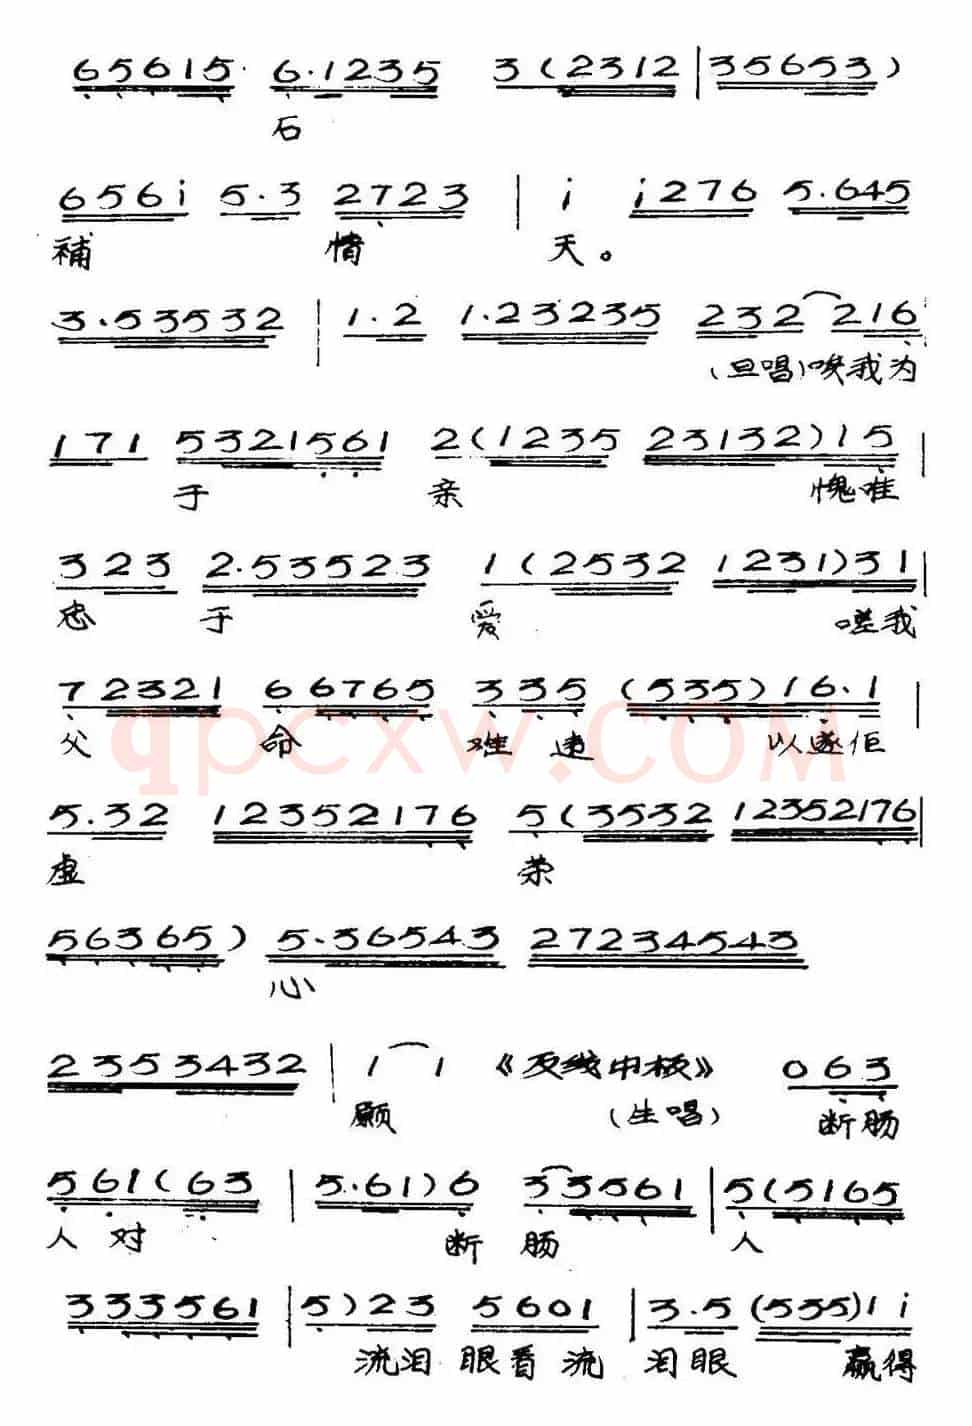 65615 6·1235 3(2312 | 35653)
石
656i 5·3 2723 | i i276 5·645
補 情 天。
3·53532 | 1·2 1·23235 232 216
(旦唱)唉我为
171 5321561 2(1235 23132)15 |
于 亲 愧难
323 2·53523 1(2532 1231)31 |
忠 于 爱 嗟我
7 2321 6 6765 335 (535)16·1 |
父 命 难 违 以遂佢
qpcxw.COM
5·32 12352176 5(3532 12352176 |
虚 荣
56365) 5·36543 27234543
心
2353432 | 1 1 《反线中板》 063
願 (生唱) 断肠
561(63 | 5·61)6 33561 | 5(5165
人 对 断 肠 人
333561 | 5)23 5601 | 3·5 (535)1i
流泪 眼看 流 泪眼 赢得